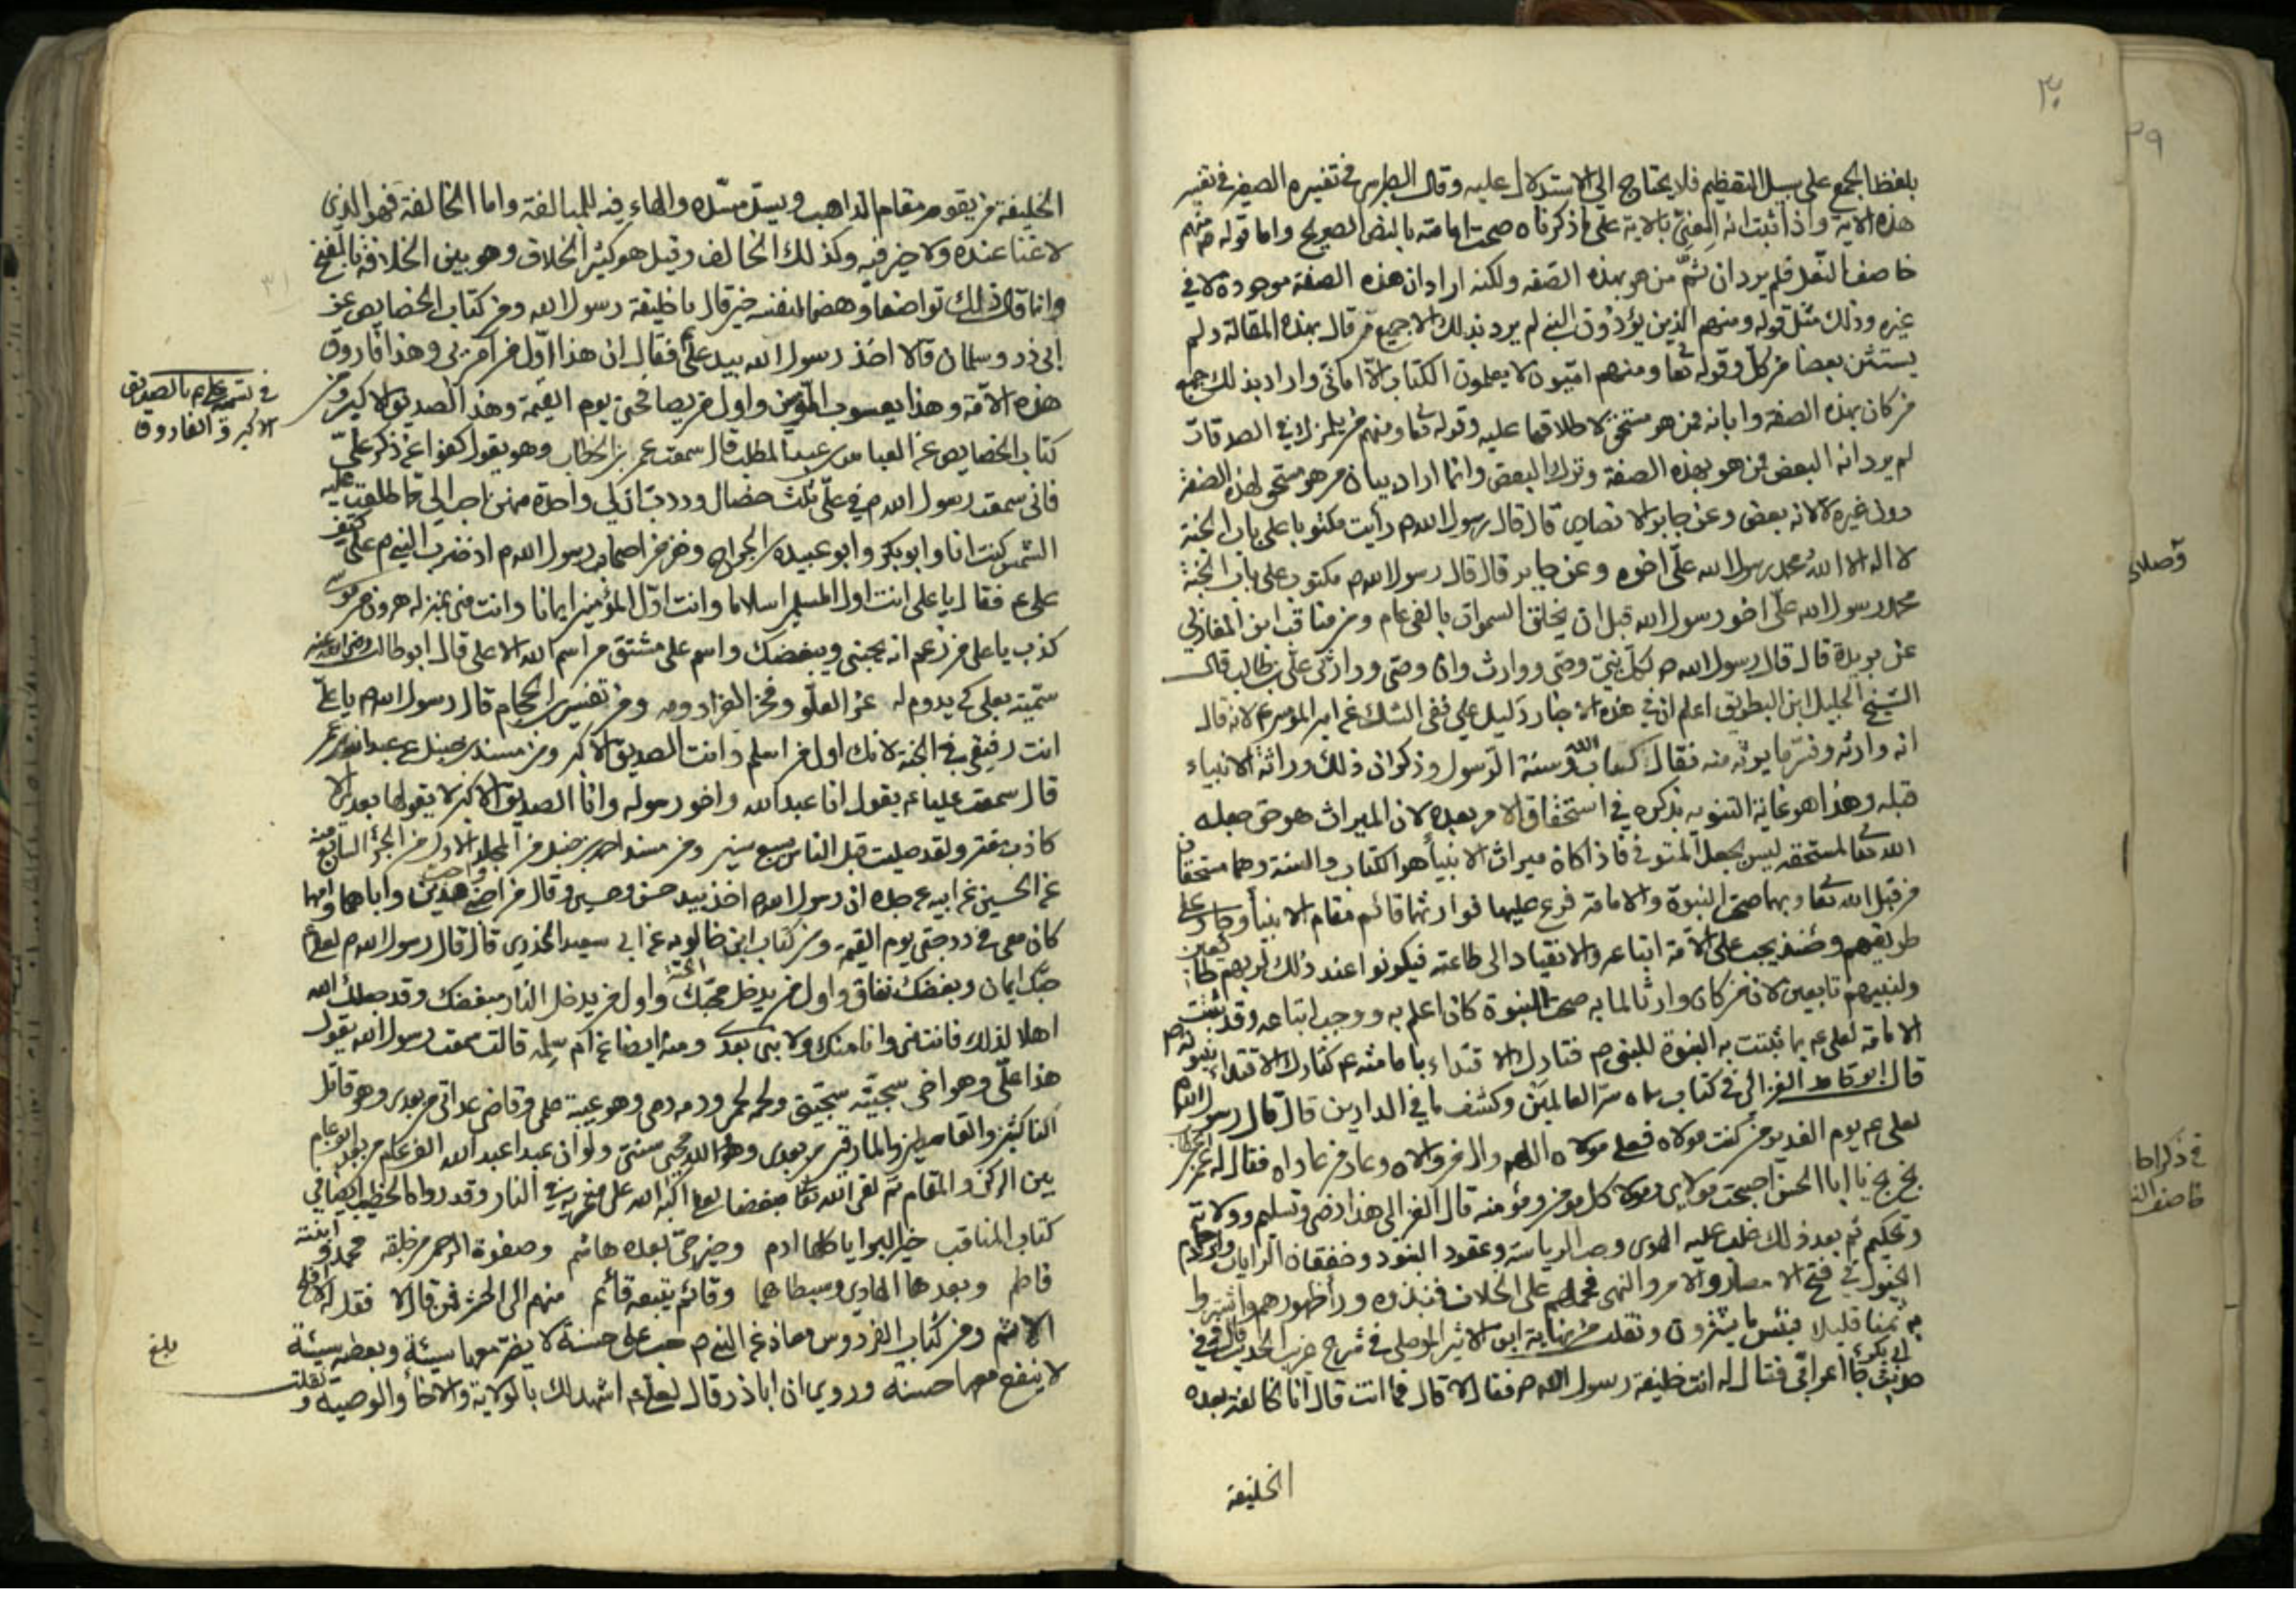 ٣٠
بلفظ الجمع على سبيل التعظيم فلا يحتاج الى الاستدلال عليه وقال الطبرسي في تفسيره الصغير في تفسير
هذه الاية واذا ثبت انه المعنىّ بالاية على ما ذكرناه صحت امامته بالنص الصريح واما قوله ص منهم
خاصف النعل فلم يرد ان ثمّ من هو بهذه الصفه ولكنه اراد ان هذه الصفة موجودة لا في
غيره وذلك مثل قوله ومنهم الذين يؤذون النبي لم يرد بذلك الا جميع من قال بهذه المقالة ولم
يستثن بعضا من كل وقوله تعا ومنهم امّيون لا يعلمون الكتاب الّا امانّى واراد بذلك جميع
من كان بهذه الصفة وابانه ممن هو مستحق لاطلاقها عليه وقوله تعا ومنهم من يلمزك في الصدقات
لم يرد انه البعض ممن هو بهذه الصفة وترك البعض وانما اراد بيان من هو مستحق لهذه الصفة
دون غيره لا لانه بعض وعن جابر الانصاري قال قال رسول الله ص رأيت مكتوبا على باب الجنة
لا اله الا الله محمد رسول الله علىّ اخوه وعن جابر قال قال رسول الله ص مكتوب على باب الجنة
محمد رسول الله علىّ اخو رسول الله قبل ان يخلق السموات بالفى عام ومن مناقب ابن المغازلي
عن بريدة قال قال رسول الله ص لكلّ نبيّ وصي ووارث وان وصيّ ووارثى علىّ بن طالب قال
الشيخ الجليل ابن البطريق اعلم ان في هذه الاخبار دليل على نفى الشك عن امير المؤمنين ع لانه قال
انه وارثه وفسّر ما يورثه منه فقال كتاب الله وسنة الرسول وذكر ان ذلك وراثة الانبياء
قبله وهذا هو غاية التنويه بذكره في استحقاق الامر بعده لان الميراث هو حق جعله
الله تعا لمستحقه ليس بجعل المتوفى فاذا كان ميراث الانبيأ هو الكتاب والسنة وهما مستحقان
من قبل الله تعا وبهما صحّ النبوة والامامة فرع عليها فوارثها قائم مقام الانبيأ وجار على
طريقهم وحينئذ يجب على الامّة اتباعه والانقياد الى طاعته فيكونوا عند ذلك لربهم طائعين
ولنبيهم تابعين لان من كان وارثا لما به صحت النبوة كان اعلم به ووجب اتباعه وقد ثبتت
الامامة لعلى ع بما ثبتت به النبوة للنبي ص فتارك الاقتداء بامامته ع كتارك الاقتداء بنبوته ص
قال ابو حامد الغزالى في كتاب سماه سرّ العالمين وكشف ما في الدارين قال قال رسول الله ص
لعلى ع يوم الغدير من كنت مولاه فعلي مولاه اللهم وال من والاه وعاد من عاداه فقال له عمر بن الخطاب
بخ بخ يا ابا الحسن اصبحت مولاى ومولى كل مؤمن ومؤمنه قال الغزالى هذا رضى وتسليم وولاية
وتحكيم ثم بعد ذلك غلب عليه الهوى وحب الرياسة وعقود البنود وخفقان الرايات وازدحام
الخيول في فتح الامصار والامر والنهى فحملهم على الخلاف فنبذوه وراء ظهورهم واشتروا
به ثمنا قليلا فبئس ما يشترون ونقلت من نهاية ابن الاثير الموصلى في شرح غريب الحديث قال في
حديث ابي بكر جأ اعرابى فقال له انت خليفة رسول الله ص فقال لا قال فما انت قال انا الخالفة بعده
الخليفة
الخليفة من يقوم مقام الذاهب ويسدّ مسدّه والهاء فيه للمبالغة واما الخالفة فهو الذي
لا غنا عنده ولا خير فيه وكذلك الخالف وقيل هو كثير الخلاف وهو بيّن الخلافة بالفتح
وانما قال ذلك تواضعا وهضما لنفسه حين قال يا خليفة رسول الله ومن كتاب الخصايص عن
ابى ذر وسلمان قالا اخذ رسول الله بيد علىّ فقال ان هذا اوّل من امن بى وهذا فاروق
هذه الامّة وهذا يعسوب المؤمنين واول من يصافحنى يوم القيمة وهذا الصديق الاكبر ومن
كتاب الخصايص عن العباس بن عبد المطلب قال سمعت عمر بن الخطاب وهو يقول كفوا عن ذكر علىّ
فانى سمعت رسول الله ص في علىّ ثلث خصال وددت ان لي واحدة منهن احب الى مما طلعت عليه
الشمس كنت انا وابو بكر وابو عبيدة بن الجراح ونفر من اصحاب رسول الله ص اذ ضرب النبي ص على كتف
على ع فقال يا على انت اول المسلمين اسلاما وانت اوّل المؤمنين ايمانا وانت منى بمنزلة هرون من موسى
كذب يا على من زعم انه يحبنى ويبغضك واسم على مشتق من اسم الله الاعلى قال ابو طالب رضى الله عنه
سمّيته بعلى كي يدوم له عزّ العلّو وفخر العز ادومه ومن تفسير بن الحجام قال رسول الله ص يا علىّ
انت رفيقى في الجنة لانك اول من اسلم وانت الصديق الاكبر ومن مسند بن حنبل عن عبد الله بن عمر
قال سمعت عليا ع يقول انا عبد الله واخو رسوله وانا الصديق الاكبر لا يقولها بعدى الا
كاذب مفتر ولقد صليت قبل الناس بسبع سنين ومن مسند احمد بن حنبل من المجلد الاول من الجزء السابع منه
عن الحسين عن ابيه عن جده ان رسول الله ص اخذ بيد حسن وحسين وقال من احبنى واحب هذين واباهما وامهما
كان معى في درجتى يوم القيمة ومن كتاب ابن خالويه عن ابى سعيد الخدرى قال قال رسول الله ص لعلى ع
حبّك ايمان وبغضك نفاق واول من يدخل الجنّة محبّك واول من يدخل النار مبغضك وقد جعلك الله
اهلا لذلك فانت منى وانا منك ولا نبى بعدى ومنه ايضا عن ام سلمه قالت سمعت رسول الله يقول
هذا علىّ وهو اخى سجيّته سجيتى ولحمه لحمى ودمه دمى وهو عيبة علمى وقاضى عداتى من بعدى وهو قاتل
الناكثين والقاسطين والمارقين من بعدى وهو والله محيى سنتى ولو ان عبدا عبد الله الف عام من بعد الف عام
بين الركن والمقام ثم لقى الله تعا مبغضا لعلى اكبّه الله على منخريه في النار وقد روى الخطيب ايضا في
كتاب المناقب خير البرايا كلها ادم وخير حىّ بعده هاشم وصفوة الرحمن من خلقه محمد وابنته
فاطم وبعدها الهادى وسبطاهما وقائم يتبعه قائم منهم الى الحشر فمن قال لا فقل له لا افلح
الاثم ومن كتاب الفردوس معاذ عن النبي ص حب على حسنة لا يضر معها سيئة وبغضه سيئة
لا ينفع معها حسنة وروى ان ابا ذر قال لعلى ع اشهد لك بالولاية والاخأ والوصية ونقلت
في تسمية على ع بالصديق
الاكبر والفاروق
بلغ
٣١
٢٩